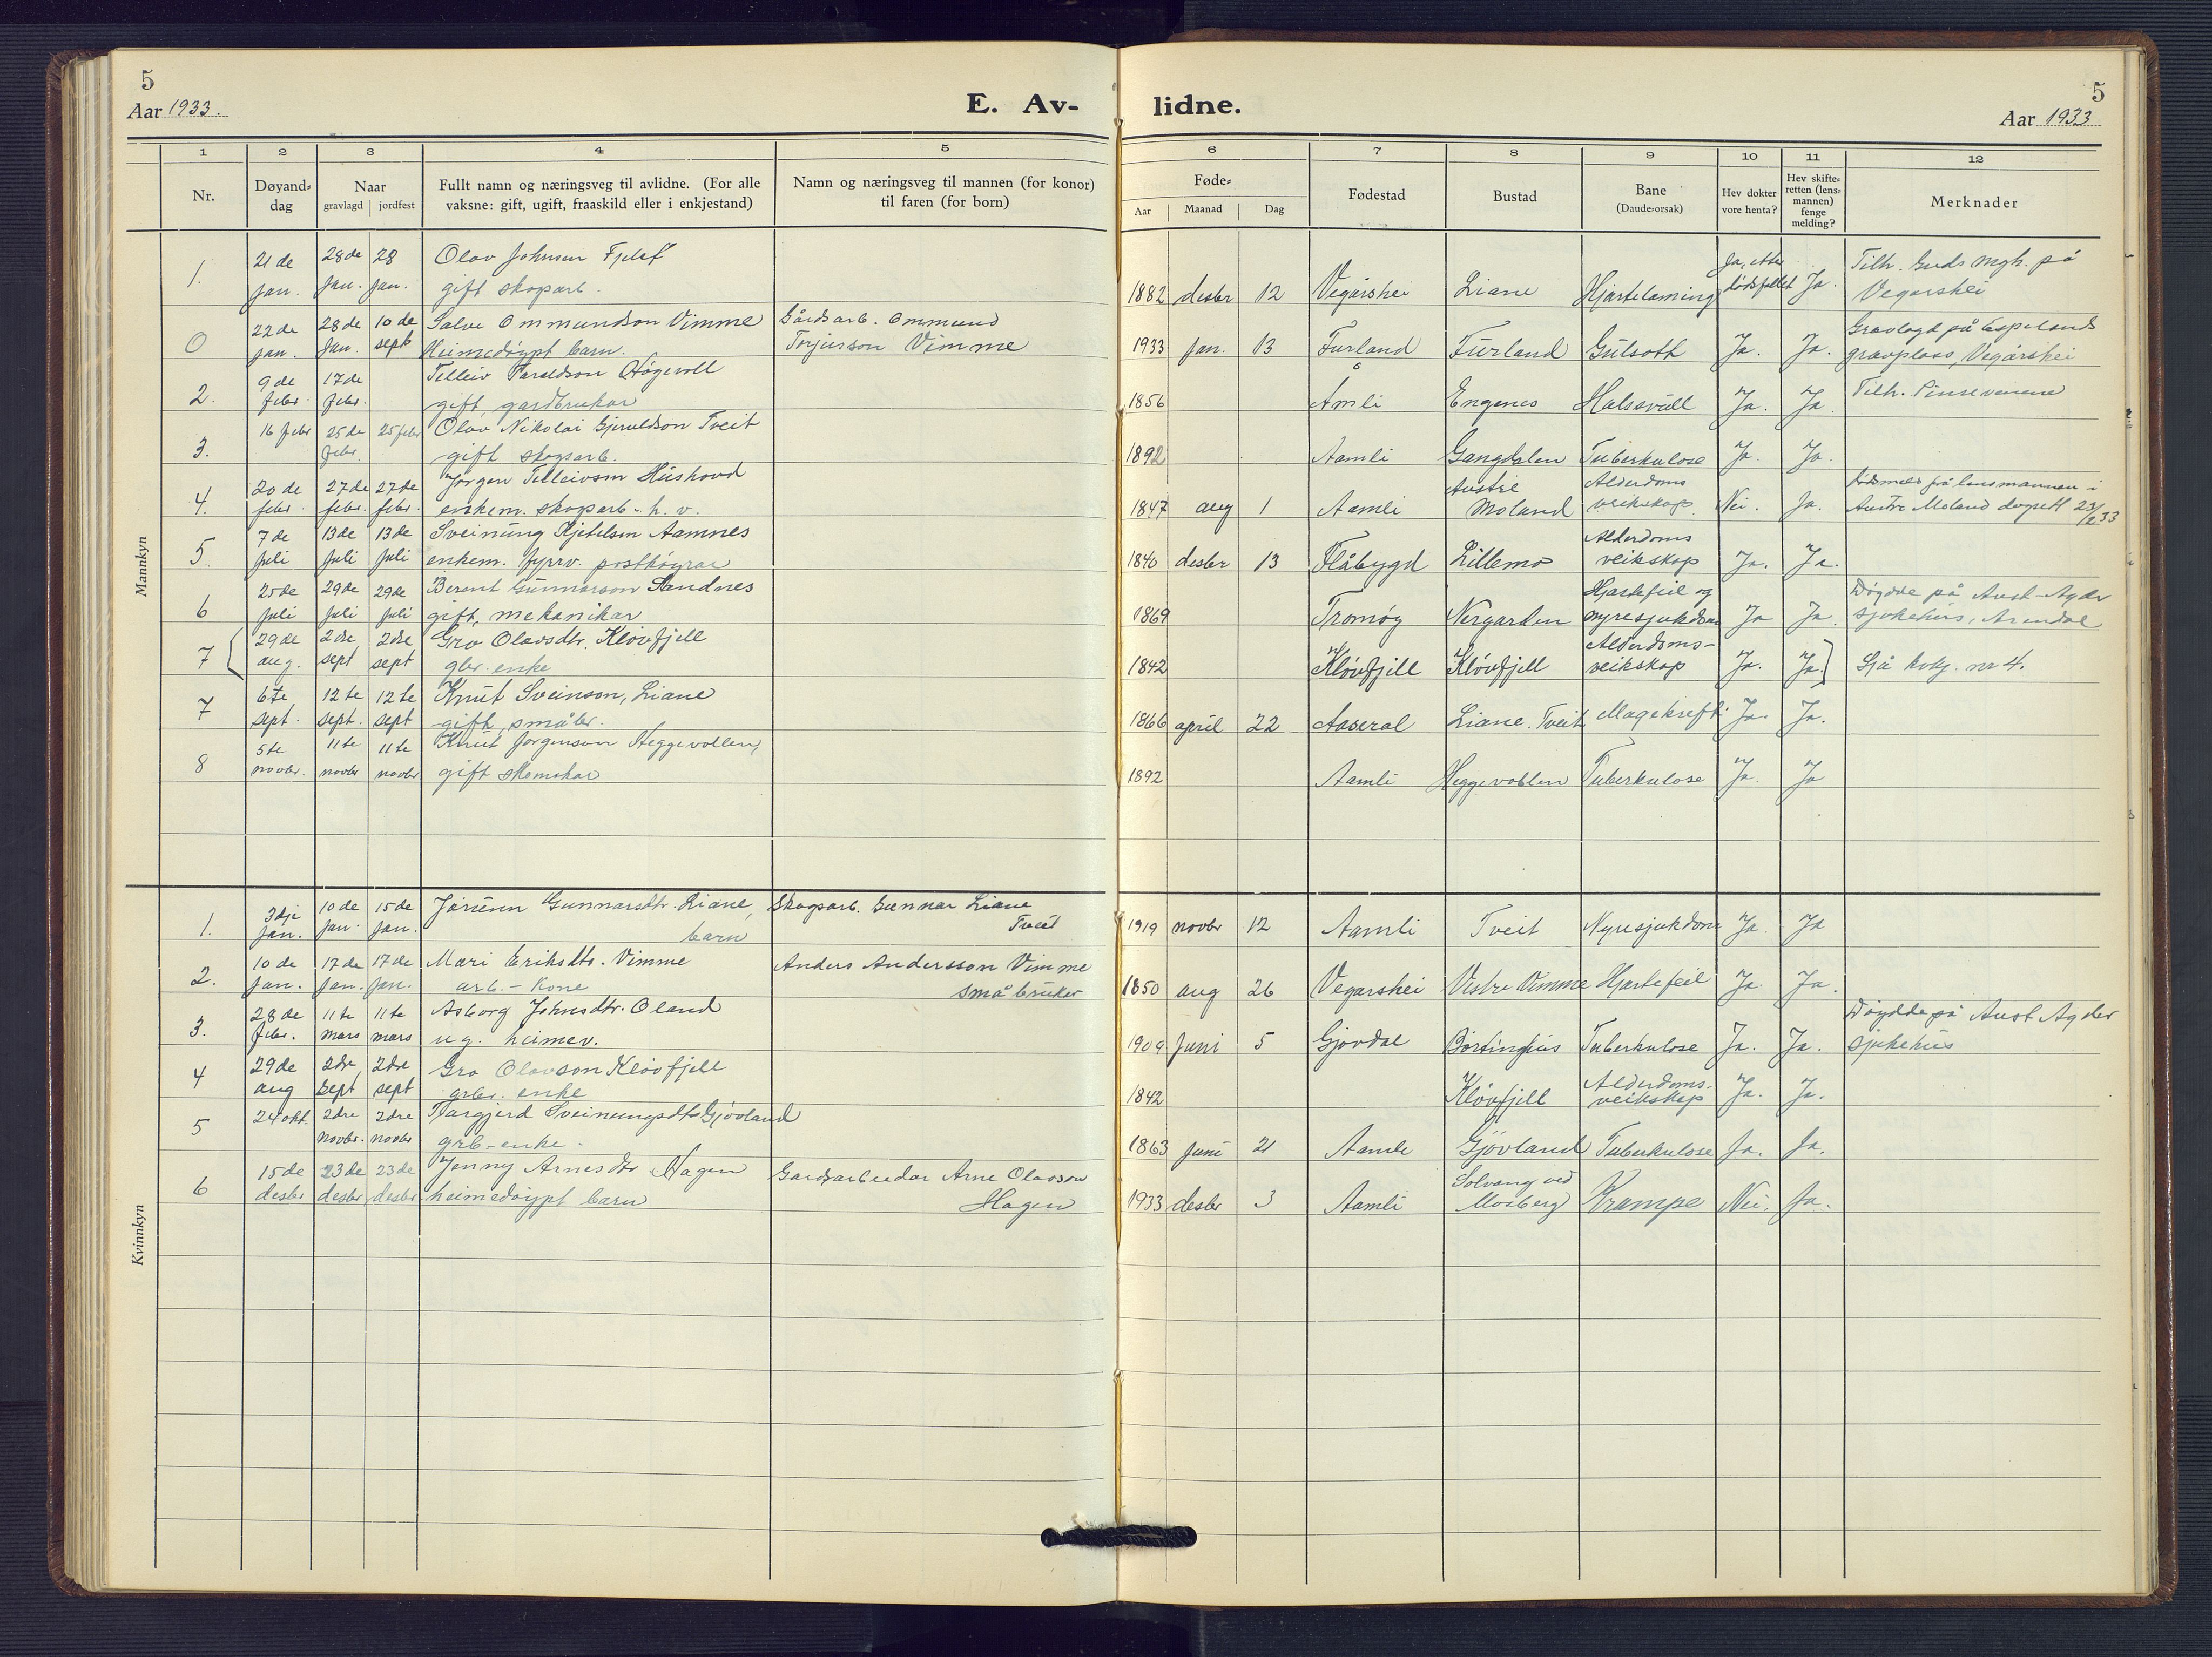 5
Aar 1933.
E. Av-
lidne.
5
Aar 1933
1 2 3 4 5 6 7 8 9 10 11 12
Nr.
Døyand-
dag
Naar
gravlagd jordfest
Fullt namn og næringsveg til avlidne. (For alle
vaksne: gift, ugift, fraaskild eller i enkjestand)
Namn og næringsveg til mannen (for konor)
til faren (for born)
Føde-
Aar Maanad Dag
Fødestad
Bustad
Bane
(Daudeorsak)
Hev dokter
vore henta?
Hev skifte-
retten (lens-
mannen)
fenge
melding?
Merknader
Mannkyn
21 de 28 de 28 Olav Johnsen Ja, etter Tilh. Guds mgh. på
1. jan. jan. jan. gift skogarb. 1882 desbr 12 Vegårshei Liane Hjartelaming dødsfallet Ja. Vegårshei
22 de 28 de 10 de Salve Ommundson Vimme Gårdsarb. Ommund Gravlagd på Espelands
0 jan. jan. sept Heimedøypt barn. Torjusson Vimme 1933 jan. 13 Furland Furland Gulsott Ja. Ja. gravplass, Vegårshei
9 de 17 de Telleiv Taraldson Høgevoll Tilh. Pinsevenene
2. febr. febr. gift, gardbrukar 1856 Åmli Engenes Halssvull Ja. Ja.
16 febr 25 de 25 febr Olav Nikolai Gjeruldson Tveit
3. febr. gift skogsarb. 1892 Aamli Gangdalen Tuberkulose Ja. Ja.
20 de 27 de 27 de Jørgen Telleivson Hushovd Austre Alderdoms dødsmeld frå lensmannen i
4. febr. febr. febr. enkem. skogarb. h. v. 1847 aug 1 Aamli Moland veikskap Nei. Ja. Austre Moland dagsett 23/2 33
7 de 13 de 13 de Sveinung Kjetilson Aamnes Alderdoms
5. juli juli juli enkem. fyrrv. postkøyrar 1840 desbr 13 Flåbygd Lillemo veikskap Ja. Ja.
25 de 29 de 29 de Berent Gunnarson Sandnes Hjartefeil og Døydde på Aust-Agder
6 juli juli juli gift, mekanikar 1869 Tromøy Nergarden nyresjukdom Ja Ja. sjukehus, Arendal
29 de 2dre 2dre Gro Olavsdtr. Kløvfjell Alderdoms-
7 aug. sept sept gbr. enke 1842 Kløvfjell Kløvfjell veikskap Ja. Ja Sjå kvky. nr 4.
6te 12 te 12 te Knut Sveinson, Liane
7 sept. sept. sept gift, småbr. 1866 april 22 Aaseral Liane. Tveit Magekreft Ja. Ja.
5te 11te 11te Knut Jørgenson Heggevollen,
8 novbr. novbr novbr gift skomakar 1892 Aamli Heggevollen Tuberkulose Ja. Ja
Kvinnkyn
3dje 10 de 15 de Jorunn Gunnarsdtr. Liane, Skogsarb. Gunnar Liane
1. jan. jan. jan. barn Tveit 1919 novbr 12 Aamli Tveit Nyresjukdom Ja. Ja
10 de 17 de 17 de Mari Eriksdtr. Vimme Anders Andersson Vimme
2. jan. jan. jan. arb. - kone småbruker 1850 aug 26 Vegarshei Vestre Vimme Hjartefeil Ja. Ja.
28 de 11 te 11 te Asborg Johnsdtr. Oland Døydde på Aust Agder
3. febr. mars mars ug. heimev. 1909 juni 5 Gjøvdal Tuberkulose Ja. Ja. sjukehus
29 de 2dre 2dre Gro Olavson Kløvfjell Alderdoms-
4 aug sept sept grbr. enke 1842 Kløvfjell veikskap Ja. Ja.
24 okt. 2dre 2dre Targjerd Sveinungsdtr Gjøvland
5 novbr. novbr grb- enke. 1863 juni 21 Aamli Gjøvland Tuberkulose Ja. Ja.
15 de 23 de 23 de Jenny Arnesdtr Hagen Gardsarbeidar Arne Olavson Solvang ved
6 desbr desbr desbr heimedøypt barn Hagen 1933 desbr 3 Aamli Mosberg Krampe Nei. Ja.